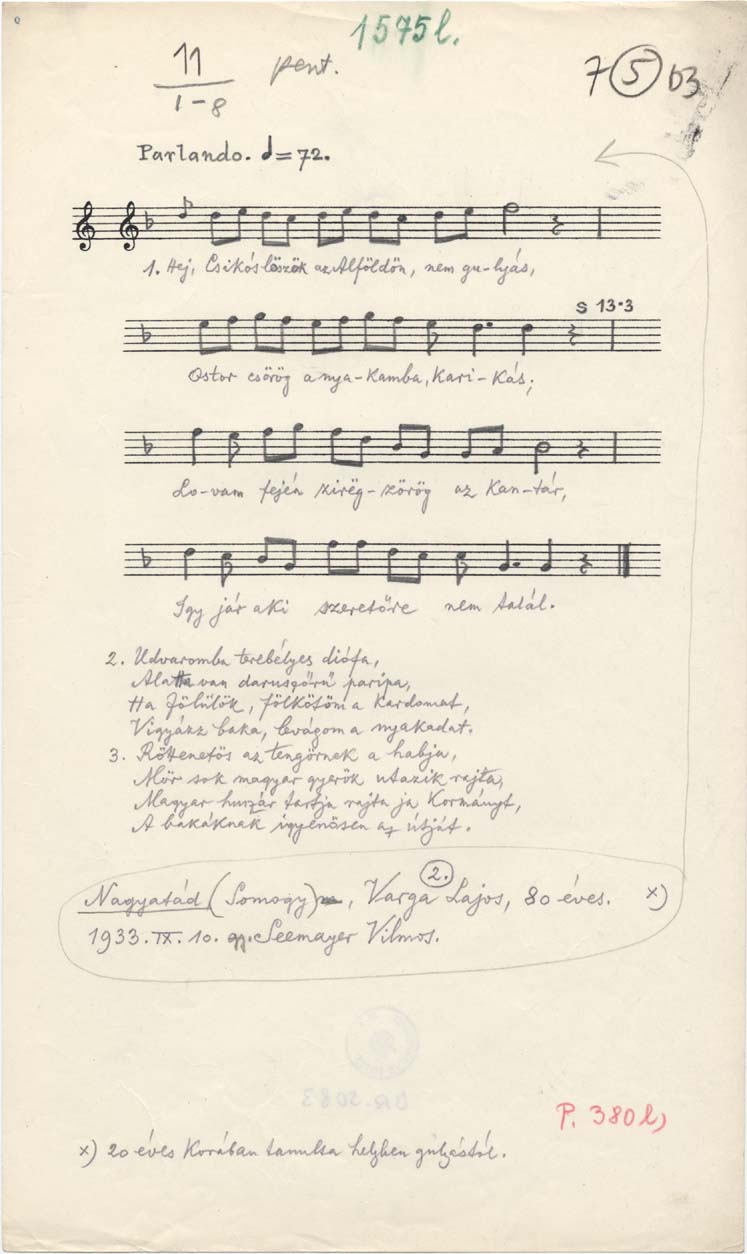 1575l.
11 pent. 7 5 b3
1-8
Parlando. = 72.
1. Hej, Csikós löszök az Alföldön, nem gu-lyás,
S 13·3
Ostor csörög a nya-kamba, kari-kás;
Lo-vam fején zirëg-zörög az kan-tár,
Igy jár aki szeretőre nem talál.
2. Udvaromba terebélyes diófa,
Alatta van darusző̋rű paripa,
Ha fölülök, fölkötöm a kardomat,
Vigyázz baka, levágom a nyakadat.
3. Röttenetös az tengörnek a habja,
Mör sok magyar gyerök utazik rajta,
Magyar huszár tartja rajta ja kormányt,
A bakáknak igyenösen az útját.
Nagyatád (Somogy), Varga 2. Lajos, 80 éves. x)
1933. IX. 10. gy. Seemayer Vilmos.
BR. 3083
P. 380 l,
x) 20 éves korában tanulta helyben gulyástól.